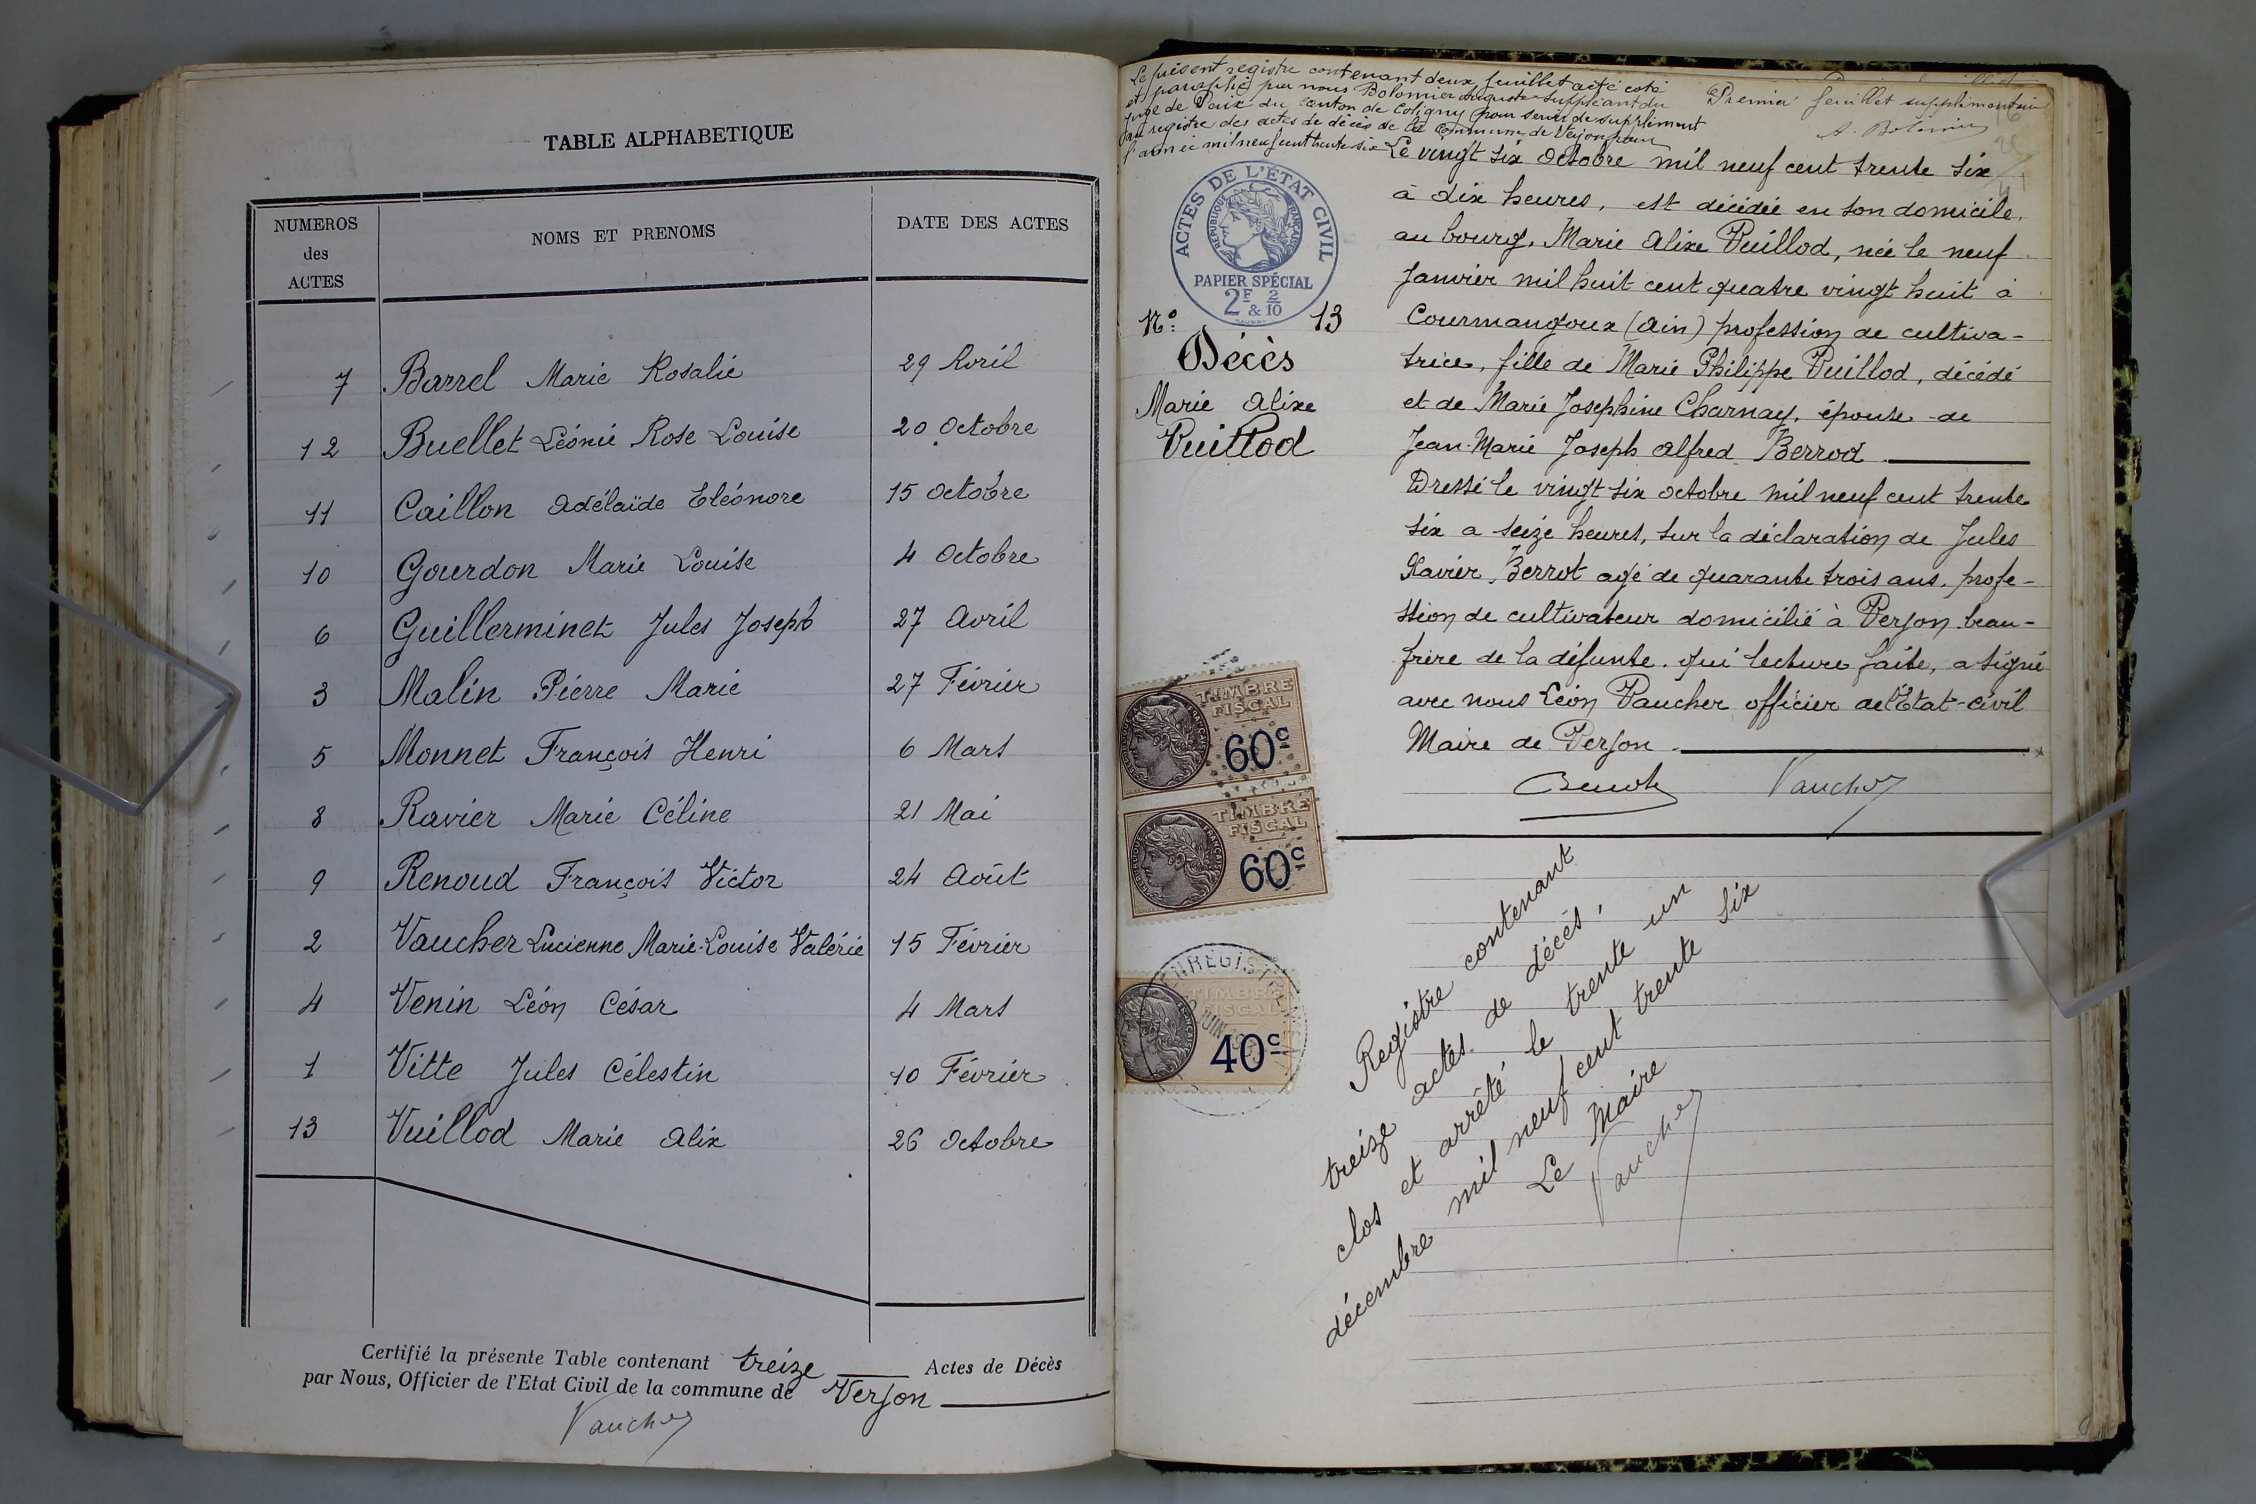 TABLE ALPHABETIQUE
NUMEROS des ACTES
NOMS ET PRENOMS
DATE DES ACTES
7 Barrel Marie Rosalie 29 Avril
12 Buellet Léonie Rose Louise 20 Octobre
11 Caillon Adélaïde Eléonore 15 Octobre
10 Gourdon Marie Louise 4 Octobre
6 Guillerminet Jules Joseph 27 Avril
3 Malin Pierre Marie 27 Février
5 Monnet François Henri 6 Mars
8 Ravier Marie Céline 21 Mai
9 Renoud François Victor 24 Août
2 Vaucher Lucienne Marie-Louise Valérie 15 Février
4 Venin Léon César 4 Mars
1 Vitte Jules Célestin 10 Février
13 Vuillod Marie Alix 26 Octobre
Certifié la présente Table contenant treize Actes de Décès
par Nous, Officier de l'Etat Civil de la commune de Verjon
Vaucher
Le présent registre contenant deux feuillet a été coté
et paraphé par nous Bolomier Auguste Suppléant du
juge de Paix du canton de Coligny pour servir de supplément
au registre des actes de décès de la commune de Verjon pour
l'année mil neuf cent trente-six
Premier feuillet supplémentaire
A. Bolomier
ACTES DE L'ETAT CIVIL
REPUBLIQUE FRANÇAISE
PAPIER SPÉCIAL
2F & 2/10
N° 13
Décès
Marie Alixe
Vuillod
Le vingt six Octobre mil neuf cent trente six
à dix heures, est décédée en son domicile,
au bourg, Marie Alixe Vuillod, née le neuf
Janvier mil huit cent quatre vingt huit à
Courmangoux (Ain) profession de cultiva-
trice, fille de Marie Philippe Vuillod, décédé
et de Marie Josephine Charnay, épouse de
Jean-Marie Joseph Alfred Berrod
Dressé le vingt six octobre mil neuf cent trente
six a seize heures, sur la déclaration de Jules
Xavier Berrot agé de quarante trois ans, profe-
ssion de cultivateur domicilié à Verjon beau-
frère de la défunte. qui lecture faite, a signé
avec nous Léon Vaucher officier de l'Etat-civil
Maire de Verjon
Berrot Vaucher
TIMBRE
FISCAL
60c
TIMBRE
FISCAL
60c
ENREGISTREMENT
TIMBRE
FISCAL
40c
Registre contenant
treize actes de décès,
clos et arrêté le trente un
décembre mil neuf cent trente six
Le Maire
Vaucher